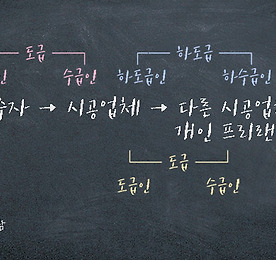 도급 하도급
인 수급인 하도급인 하수급인
자 → 시공업체 → 다른 시공업
개인 프리랜
도급
도급인 수급인